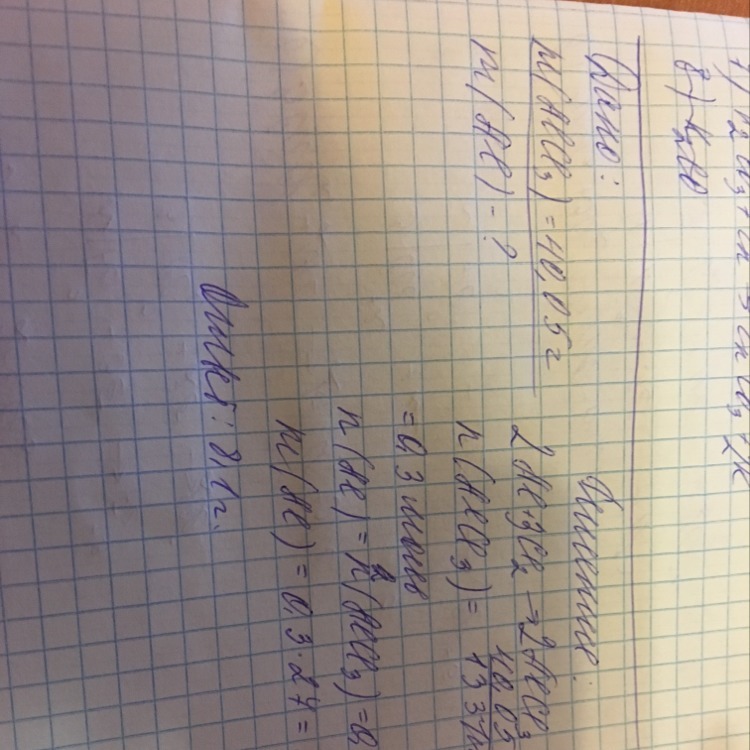 Дано:
m(AlCl₃) = 40,05 г
m(Al) - ?
Решение:
2Al + 3Cl₂ → 2AlCl₃
n(AlCl₃) = 40,05 / 133,
= 0,3 моль
n(Al) = n(AlCl₃) = 0,
m(Al) = 0,3 · 27 =
Ответ: 8,1 г.